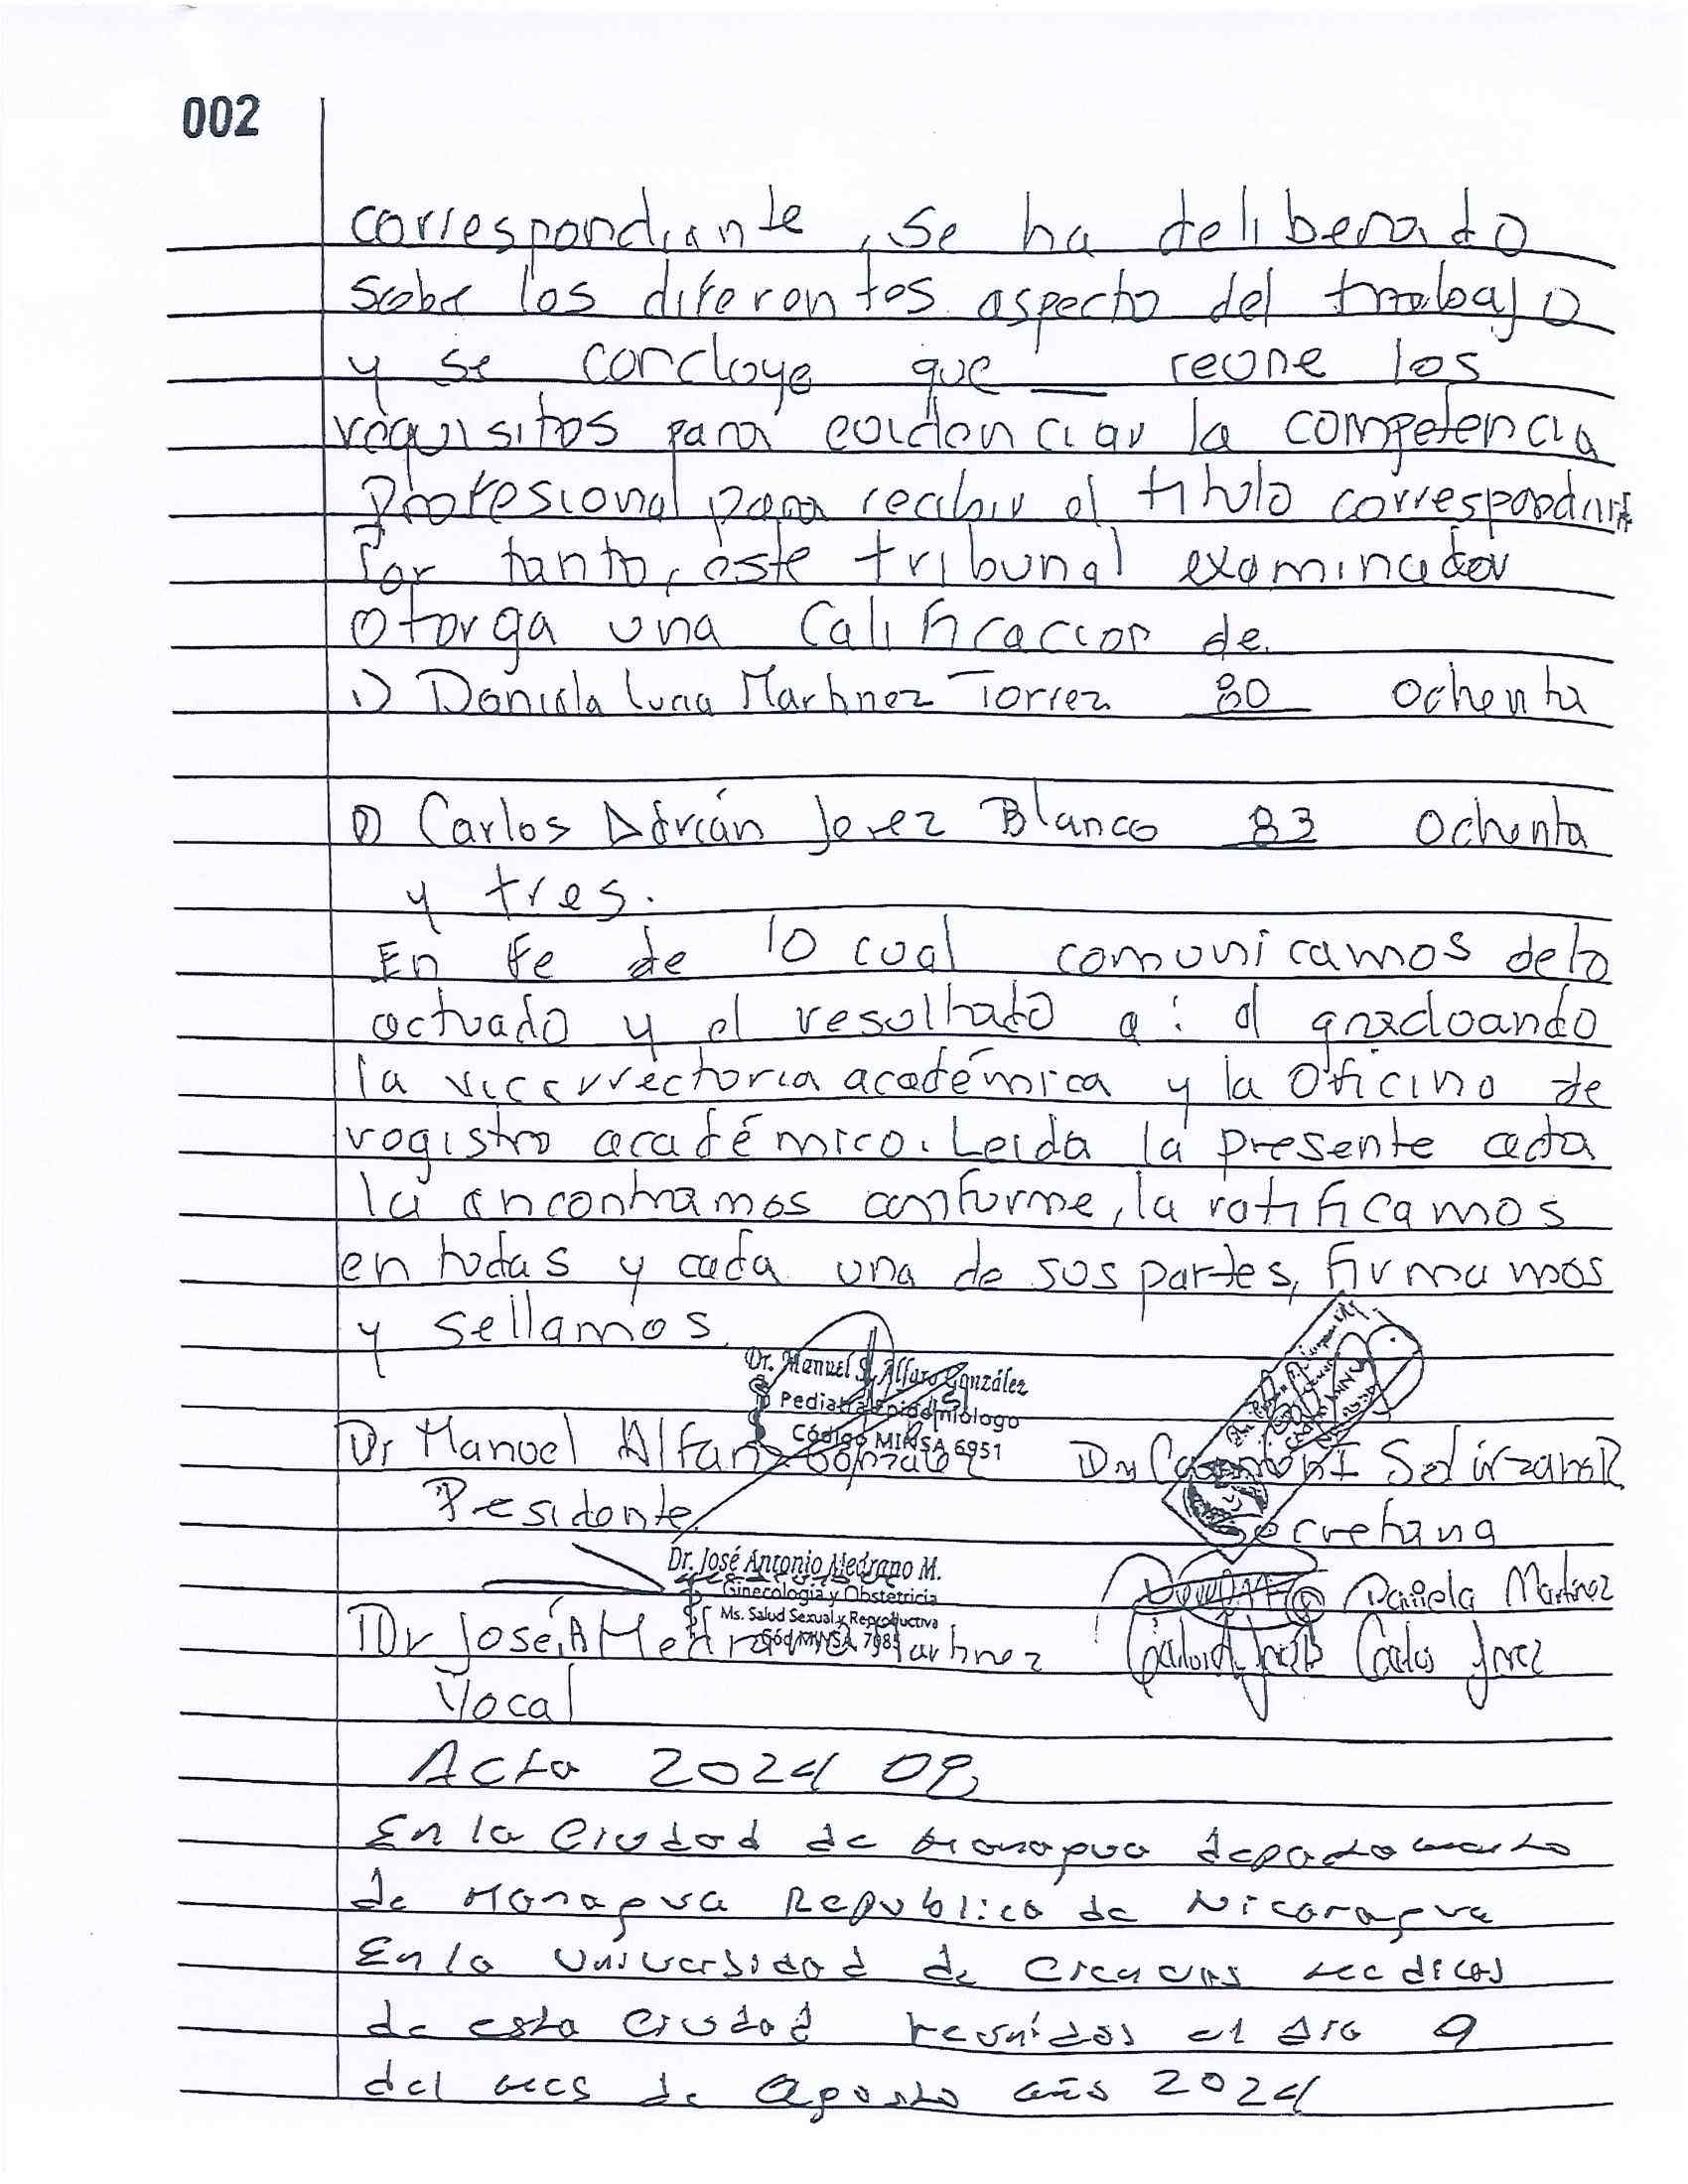 002
correspondiante, se ha deliberado
sobre los diferentes aspecto del trabajo
y se concluye que __ reune los
requisitos para evidenciar la competencia
Profesional para recibir el titulo correspondiante
Por tanto, este tribunal examinador
otorga una Calificaccion de
1) Daniela Lucia Martinez Torrez 80 ochenta
Carlos Adrián Jerez Blanco 83 ochenta
y tres.
En Fe de lo cual comunicamos de lo
actuado y el resultado a: el graduando
la vicerrectoria académica y la oficina de
registro académico. Leida la presente acta
la encontramos conforme, la ratificamos
en todas y cada una de sus partes, firmamos
y sellamos
Dr. Manuel S. Alfaro González
Pediatra Epidemiologo
Código MINSA 6951
Dr Manuel Alfaro Gonzalez
Solórzano R
Presidente
Secretaria
Dr. José Antonio Medrano M.
Ginecología y Obstetricia
Ms. Salud Sexual y Reproductiva
Cód MINSA 7985
Daniela Martinez
Dr José A Medrano Martinez
Carlos Jerez
Vocal
Acta 2024 09
En la Ciudad de Managua departamento
de Managua Republica de Nicaragua
En la Universidad de Ciencias medicas
de esta Ciudad reunidos el dia 9
del mes de Agosto año 2024